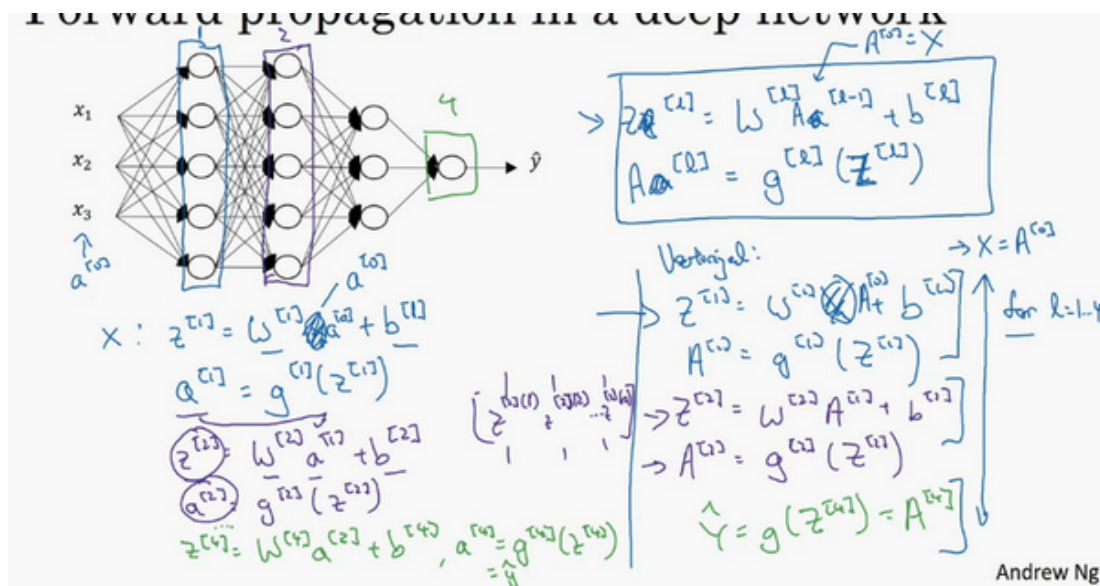 Forward propagation in a deep network
1
2
4
x₁
x₂
x₃
ŷ
a^[0]
A^[0] = X
→ Z^[l] = W^[l] A^[l-1] + b^[l]
A^[l] = g^[l](Z^[l])
a^[0]
X : z^[1] = W^[1] a^[0] + b^[1]
a^[1] = g^[1](z^[1])
z^[2] = W^[2] a^[1] + b^[2]
a^[2] = g^[2](z^[2])
...
z^[4] = W^[4] a^[3] + b^[4], a^[4] = g^[4](z^[4])
= ŷ
Vectorized:
→ X = A^[0]
→ Z^[1] = W^[1] A^[0] + b^[1]
A^[1] = g^[1](Z^[1])
for l=1..4
→ Z^[2] = W^[2] A^[1] + b^[2]
→ A^[2] = g^[2](Z^[2])
Ŷ = g(Z^[4]) = A^[4]
Andrew Ng